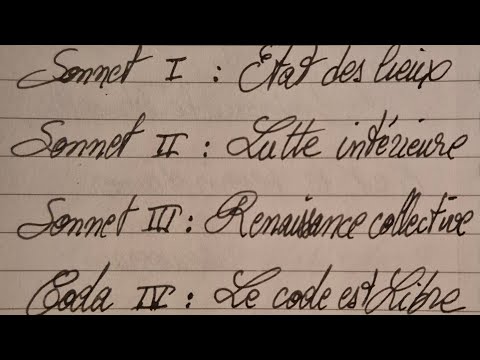 Sonnet I : Etat des lieux
Sonnet II : Lutte intérieure
Sonnet III : Renaissance collective
Coda IV : Le code est Libre